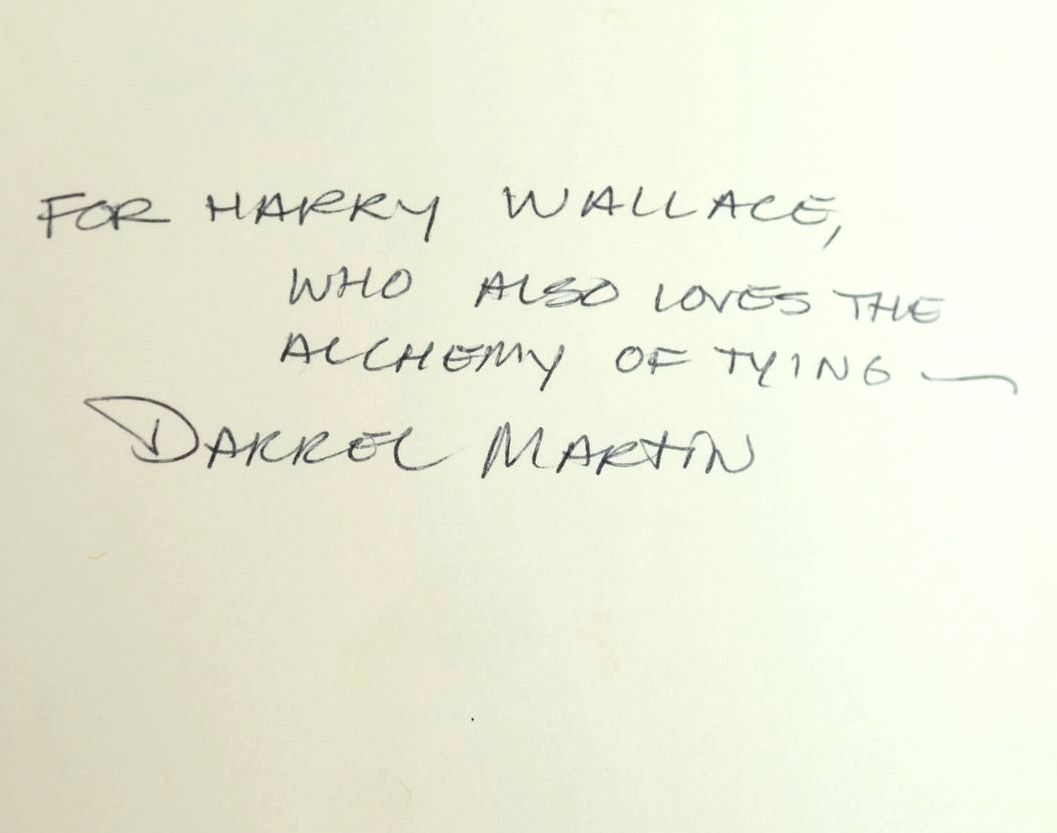 FOR HARRY WALLACE,
WHO ALSO LOVES THE
ALCHEMY OF TYING —
DARREL MARTIN